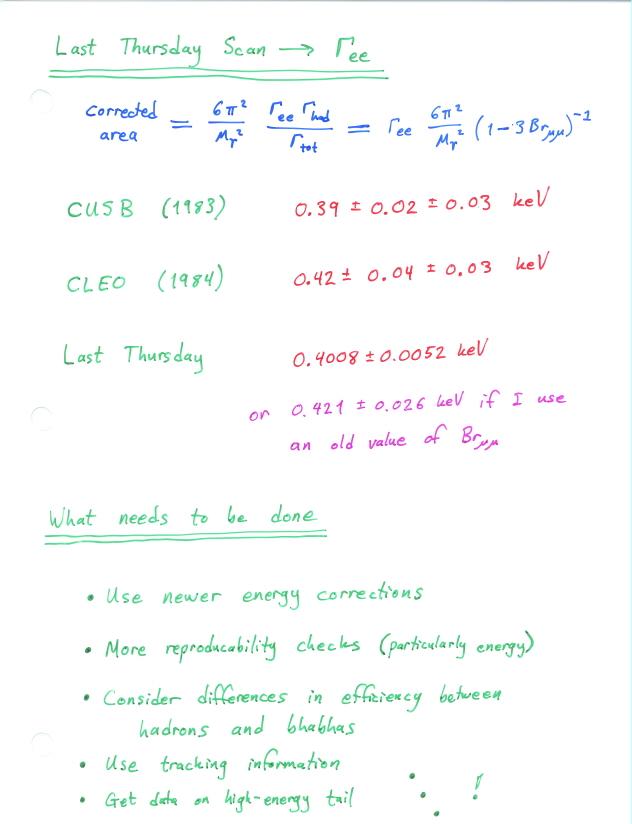 Last Thursday Scan → Γee
Corrected area = 6π²/Mϒ² ΓeeΓhad/Γtot = Γee 6π²/Mϒ² (1-3Brμμ)⁻¹
CUSB (1983) 0.39 ± 0.02 ± 0.03 keV
CLEO (1984) 0.42 ± 0.04 ± 0.03 keV
Last Thursday 0.4008 ± 0.0052 keV
or 0.421 ± 0.026 keV if I use
an old value of Brμμ
What needs to be done
• Use newer energy corrections
• More reproducability checks (particularly energy)
• Consider differences in efficiency between
hadrons and bhabhas
• Use tracking information
• Get data on high-energy tail ⋱ !